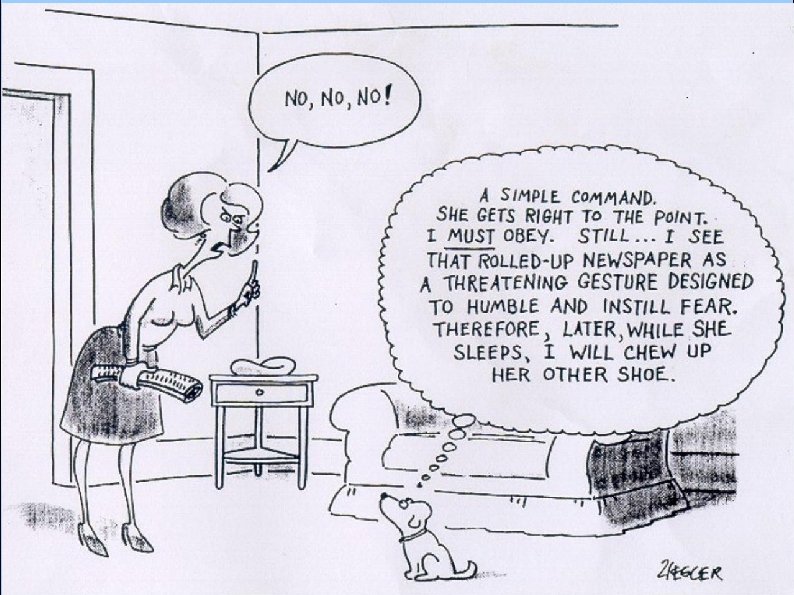 NO, NO, NO!
A SIMPLE COMMAND.
SHE GETS RIGHT TO THE POINT.
I MUST OBEY. STILL... I SEE
THAT ROLLED-UP NEWSPAPER AS
A THREATENING GESTURE DESIGNED
TO HUMBLE AND INSTILL FEAR.
THEREFORE, LATER, WHILE SHE
SLEEPS, I WILL CHEW UP
HER OTHER SHOE.
ZIEGLER